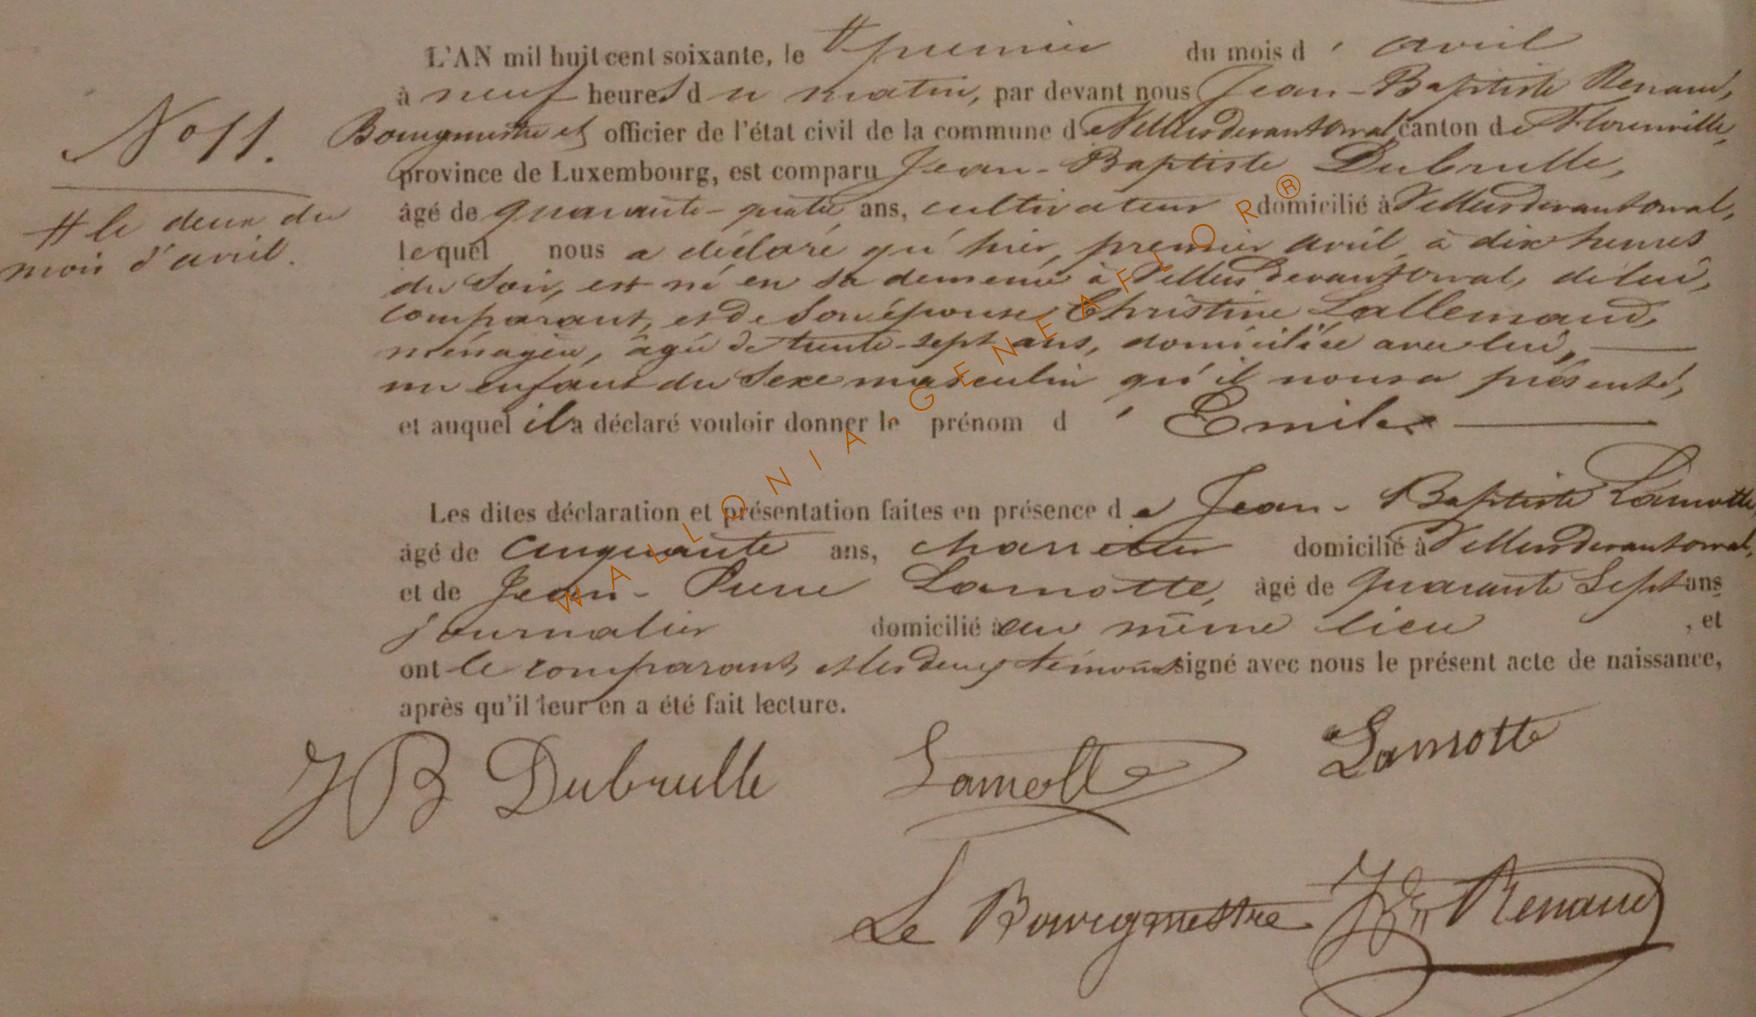 L'AN mil huit cent soixante, le # premier du mois d' avril
à neuf heures du matin, par devant nous Jean-Baptiste Renaud,
No 11. Bourgmestre et officier de l'état civil de la commune de Villersdevantorval canton de Florenville,
province de Luxembourg, est comparu Jean-Baptiste Dubrulle,
# le deux du
mois d'avril.
âgé de quarante-quatre ans, cultivateur domicilié à Villersdevantorval,
lequel nous a déclaré qu'hier, premier avril, à dix heures
du soir, est né en sa demeure à Villersdevantorval, de lui,
comparant, et de son épouse Christine Lallemand,
ménagère, âgée de trente-sept ans, domiciliée avec lui,
un enfant du sexe masculin qu'il nous a présenté,
et auquel il a déclaré vouloir donner le prénom d' Emile
Les dites déclaration et présentation faites en présence de Jean-Baptiste Lamotte,
âgé de cinquante ans, domicilié à Villersdevantorval,
et de Jean-Pierre Lamotte, âgé de quarante sept ans
journalier domicilié à au même lieu , et
ont le comparant et les deux témoins signé avec nous le présent acte de naissance,
après qu'il leur en a été fait lecture.
JB Dubrulle Lamotte Lamotte
Le Bourgmestre Renaud
WALLONIA GENEAFLOR®